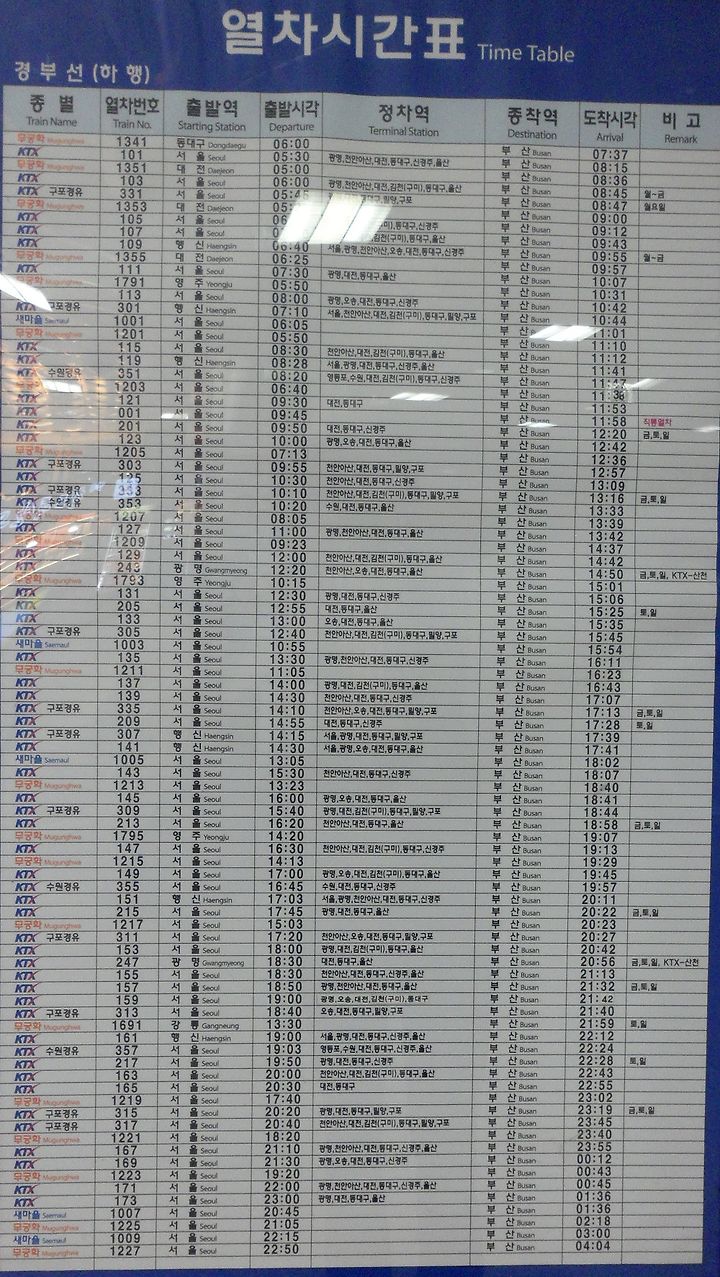 열차시간표 Time Table
경부선(하행)
종별 열차번호 출발역 출발시각 정차역 종착역 도착시각 비고
Train Name Train No. Starting Station Departure Terminal Station Destination Arrival Remark
무궁화 Mugunghwa 1341 동대구 Dongdaegu 06:00 부산 Busan 07:37
KTX 101 서울 Seoul 05:30 광명,천안아산,대전,동대구,신경주,울산 부산 Busan 08:15
무궁화 Mugunghwa 1351 대전 Daejeon 05:00 부산 Busan 08:36
KTX 103 서울 Seoul 06:00 광명,천안아산,대전,김천(구미),동대구,울산 부산 Busan 08:45 월~금
KTX 구포경유 331 서울 Seoul 밀양,구포 부산 Busan 08:47 월요일
무궁화 Mugunghwa 1353 대전 Daejeon 부산 Busan 09:00
KTX 105 서울 Seoul 동대구,신경주 부산 Busan 09:12
KTX 107 서울 Seoul 동대구,울산 부산 Busan 09:43
KTX 109 행신 Haengsin 06:40 서울,광명,천안아산,오송,대전,동대구,울산 부산 Busan 09:55 월~금
무궁화 Mugunghwa 1355 대전 Daejeon 06:25 부산 Busan 09:57
KTX 111 서울 Seoul 07:30 광명,대전,동대구,울산 부산 Busan 10:07
무궁화 Mugunghwa 1791 영주 Yeongju 05:50 부산 Busan 10:31
KTX 113 서울 Seoul 08:00 광명,오송,대전,동대구,신경주 부산 Busan 10:42
KTX 구포경유 301 행신 Haengsin 07:10 서울,천안아산,대전,김천(구미),동대구,밀양,구포 부산 Busan 10:44
새마을 Saemaul 1001 서울 Seoul 06:05 부산 Busan 11:01
무궁화 Mugunghwa 1201 서울 Seoul 05:50 부산 Busan 11:10
KTX 115 서울 Seoul 08:30 천안아산,대전,김천(구미),동대구,울산 부산 Busan 11:12
KTX 119 행신 Haengsin 08:28 서울,광명,대전,동대구,신경주,울산 부산 Busan 11:41
KTX 수원경유 351 서울 Seoul 08:20 영등포,수원,대전,김천(구미),동대구,신경주 부산 Busan 11:47
무궁화 1203 서울 Seoul 06:40 부산 Busan 11:38
KTX 121 서울 Seoul 09:30 대전,동대구 부산 Busan 11:53
KTX 001 서울 Seoul 09:45 부산 Busan 11:58 직통열차
KTX 201 서울 Seoul 09:50 대전,동대구,신경주 부산 Busan 12:20 금,토,일
KTX 123 서울 Seoul 10:00 광명,오송,대전,동대구,울산 부산 Busan 12:42
무궁화 Mugunghwa 1205 서울 Seoul 07:13 부산 Busan 12:36
KTX 구포경유 303 서울 Seoul 09:55 천안아산,대전,동대구,밀양,구포 부산 Busan 12:57
KTX 125 서울 Seoul 10:30 천안아산,대전,동대구,신경주 부산 Busan 13:09
KTX 구포경유 서울 Seoul 10:10 천안아산,대전,김천(구미),동대구,밀양,구포 부산 Busan 13:16 금,토,일
KTX 수원경유 353 서울 Seoul 10:20 수원,대전,동대구,울산 부산 Busan 13:33
무궁화 Mugunghwa 1207 서울 Seoul 08:05 부산 Busan 13:39
KTX 127 서울 Seoul 11:00 광명,천안아산,대전,동대구,울산 부산 Busan 13:42
무궁화 Mugunghwa 1209 서울 Seoul 09:23 부산 Busan 14:37
KTX 129 서울 Seoul 12:00 천안아산,대전,김천(구미),동대구,울산 부산 Busan 14:42
KTX 243 광명 Gwangmyeong 12:20 천안아산,오송,대전,동대구,울산 부산 Busan 14:50 금,토,일, KTX-산천
무궁화 Mugunghwa 1793 영주 Yeongju 10:15 부산 Busan 15:01
KTX 131 서울 Seoul 12:30 광명,대전,동대구,신경주 부산 Busan 15:06
KTX 205 서울 Seoul 12:55 대전,동대구,울산 부산 Busan 15:25 토,일
KTX 133 서울 Seoul 13:00 오송,대전,동대구,울산 부산 Busan 15:35
KTX 구포경유 305 서울 Seoul 12:40 천안아산,대전,김천(구미),동대구,밀양,구포 부산 Busan 15:45
새마을 Saemaul 1003 서울 Seoul 10:55 부산 Busan 15:54
KTX 135 서울 Seoul 13:30 광명,천안아산,대전,동대구,신경주 부산 Busan 16:11
무궁화 Mugunghwa 1211 서울 Seoul 11:05 부산 Busan 16:23
KTX 137 서울 Seoul 14:00 광명,대전,김천(구미),동대구,울산 부산 Busan 16:43
KTX 139 서울 Seoul 14:30 천안아산,대전,동대구,신경주 부산 Busan 17:07
KTX 구포경유 335 서울 Seoul 14:10 천안아산,오송,대전,동대구,밀양,구포 부산 Busan 17:13 금,토,일
KTX 209 서울 Seoul 14:55 대전,동대구,신경주 부산 Busan 17:28 토,일
KTX 구포경유 307 행신 Haengsin 14:15 서울,광명,대전,동대구,밀양,구포 부산 Busan 17:39
KTX 141 행신 Haengsin 14:30 서울,광명,오송,대전,동대구,울산 부산 Busan 17:41
새마을 Saemaul 1005 서울 Seoul 13:05 부산 Busan 18:02
KTX 143 서울 Seoul 15:30 천안아산,대전,동대구,신경주 부산 Busan 18:07
무궁화 Mugunghwa 1213 서울 Seoul 13:23 부산 Busan 18:40
KTX 145 서울 Seoul 16:00 광명,오송,대전,동대구,울산 부산 Busan 18:41
KTX 구포경유 309 서울 Seoul 15:40 광명,대전,김천(구미),동대구,밀양,구포 부산 Busan 18:44
KTX 213 서울 Seoul 16:20 천안아산,대전,동대구,울산 부산 Busan 18:58 금,토,일
무궁화 Mugunghwa 1795 영주 Yeongju 14:20 부산 Busan 19:07
KTX 147 서울 Seoul 16:30 천안아산,대전,김천(구미),동대구,신경주 부산 Busan 19:13
무궁화 Mugunghwa 1215 서울 Seoul 14:13 부산 Busan 19:29
KTX 149 서울 Seoul 17:00 광명,오송,대전,김천(구미),동대구,울산 부산 Busan 19:45
KTX 수원경유 355 서울 Seoul 16:45 수원,대전,동대구,신경주 부산 Busan 19:57
KTX 151 행신 Haengsin 17:03 서울,광명,천안아산,대전,동대구,신경주 부산 Busan 20:11
KTX 215 서울 Seoul 17:45 광명,대전,동대구,울산 부산 Busan 20:22 금,토,일
무궁화 Mugunghwa 1217 서울 Seoul 15:03 부산 Busan 20:23
KTX 구포경유 311 서울 Seoul 17:20 천안아산,오송,대전,동대구,밀양,구포 부산 Busan 20:27
KTX 153 서울 Seoul 18:00 광명,대전,김천(구미),동대구,울산 부산 Busan 20:42
KTX 247 광명 Gwangmyeong 18:30 대전,동대구,울산 부산 Busan 20:56 금,토,일, KTX-산천
KTX 155 서울 Seoul 18:30 천안아산,대전,동대구,신경주,울산 부산 Busan 21:13
KTX 157 서울 Seoul 18:50 광명,천안아산,대전,동대구,울산 부산 Busan 21:32 금,토,일
KTX 159 서울 Seoul 19:00 광명,오송,대전,김천(구미),동대구 부산 Busan 21:42
KTX 구포경유 313 서울 Seoul 18:40 오송,대전,동대구,밀양,구포 부산 Busan 21:40
무궁화 Mugunghwa 1691 강릉 Gangneung 13:30 부산 Busan 21:59 토,일
KTX 161 행신 Haengsin 19:00 서울,광명,대전,동대구,신경주,울산 부산 Busan 22:12
KTX 수원경유 357 서울 Seoul 19:03 영등포,수원,대전,동대구,신경주,울산 부산 Busan 22:24
KTX 217 서울 Seoul 19:50 광명,대전,동대구,신경주 부산 Busan 22:28 토,일
KTX 163 서울 Seoul 20:00 천안아산,대전,김천(구미),동대구,울산 부산 Busan 22:43
KTX 165 서울 Seoul 20:30 대전,동대구 부산 Busan 22:55
무궁화 Mugunghwa 1219 서울 Seoul 17:40 부산 Busan 23:02
KTX 구포경유 315 서울 Seoul 20:20 광명,대전,동대구,밀양,구포 부산 Busan 23:19 금,토,일
KTX 구포경유 317 서울 Seoul 20:40 천안아산,대전,김천(구미),동대구,밀양,구포 부산 Busan 23:45
무궁화 Mugunghwa 1221 서울 Seoul 18:20 부산 Busan 23:40
KTX 167 서울 Seoul 21:10 광명,천안아산,대전,동대구,울산 부산 Busan 23:55
KTX 169 서울 Seoul 21:30 광명,오송,대전,동대구,신경주 부산 Busan 00:12
무궁화 Mugunghwa 1223 서울 Seoul 19:20 부산 Busan 00:43
KTX 171 서울 Seoul 22:00 광명,천안아산,대전,동대구,신경주,울산 부산 Busan 00:45
KTX 173 서울 Seoul 23:00 광명,대전,동대구,울산 부산 Busan 01:36
새마을 Saemaul 1007 서울 Seoul 20:45 부산 Busan 01:36
무궁화 Mugunghwa 1225 서울 Seoul 21:05 부산 Busan 02:18
새마을 Saemaul 1009 서울 Seoul 22:15 부산 Busan 03:00
무궁화 Mugunghwa 1227 서울 Seoul 22:50 부산 Busan 04:04